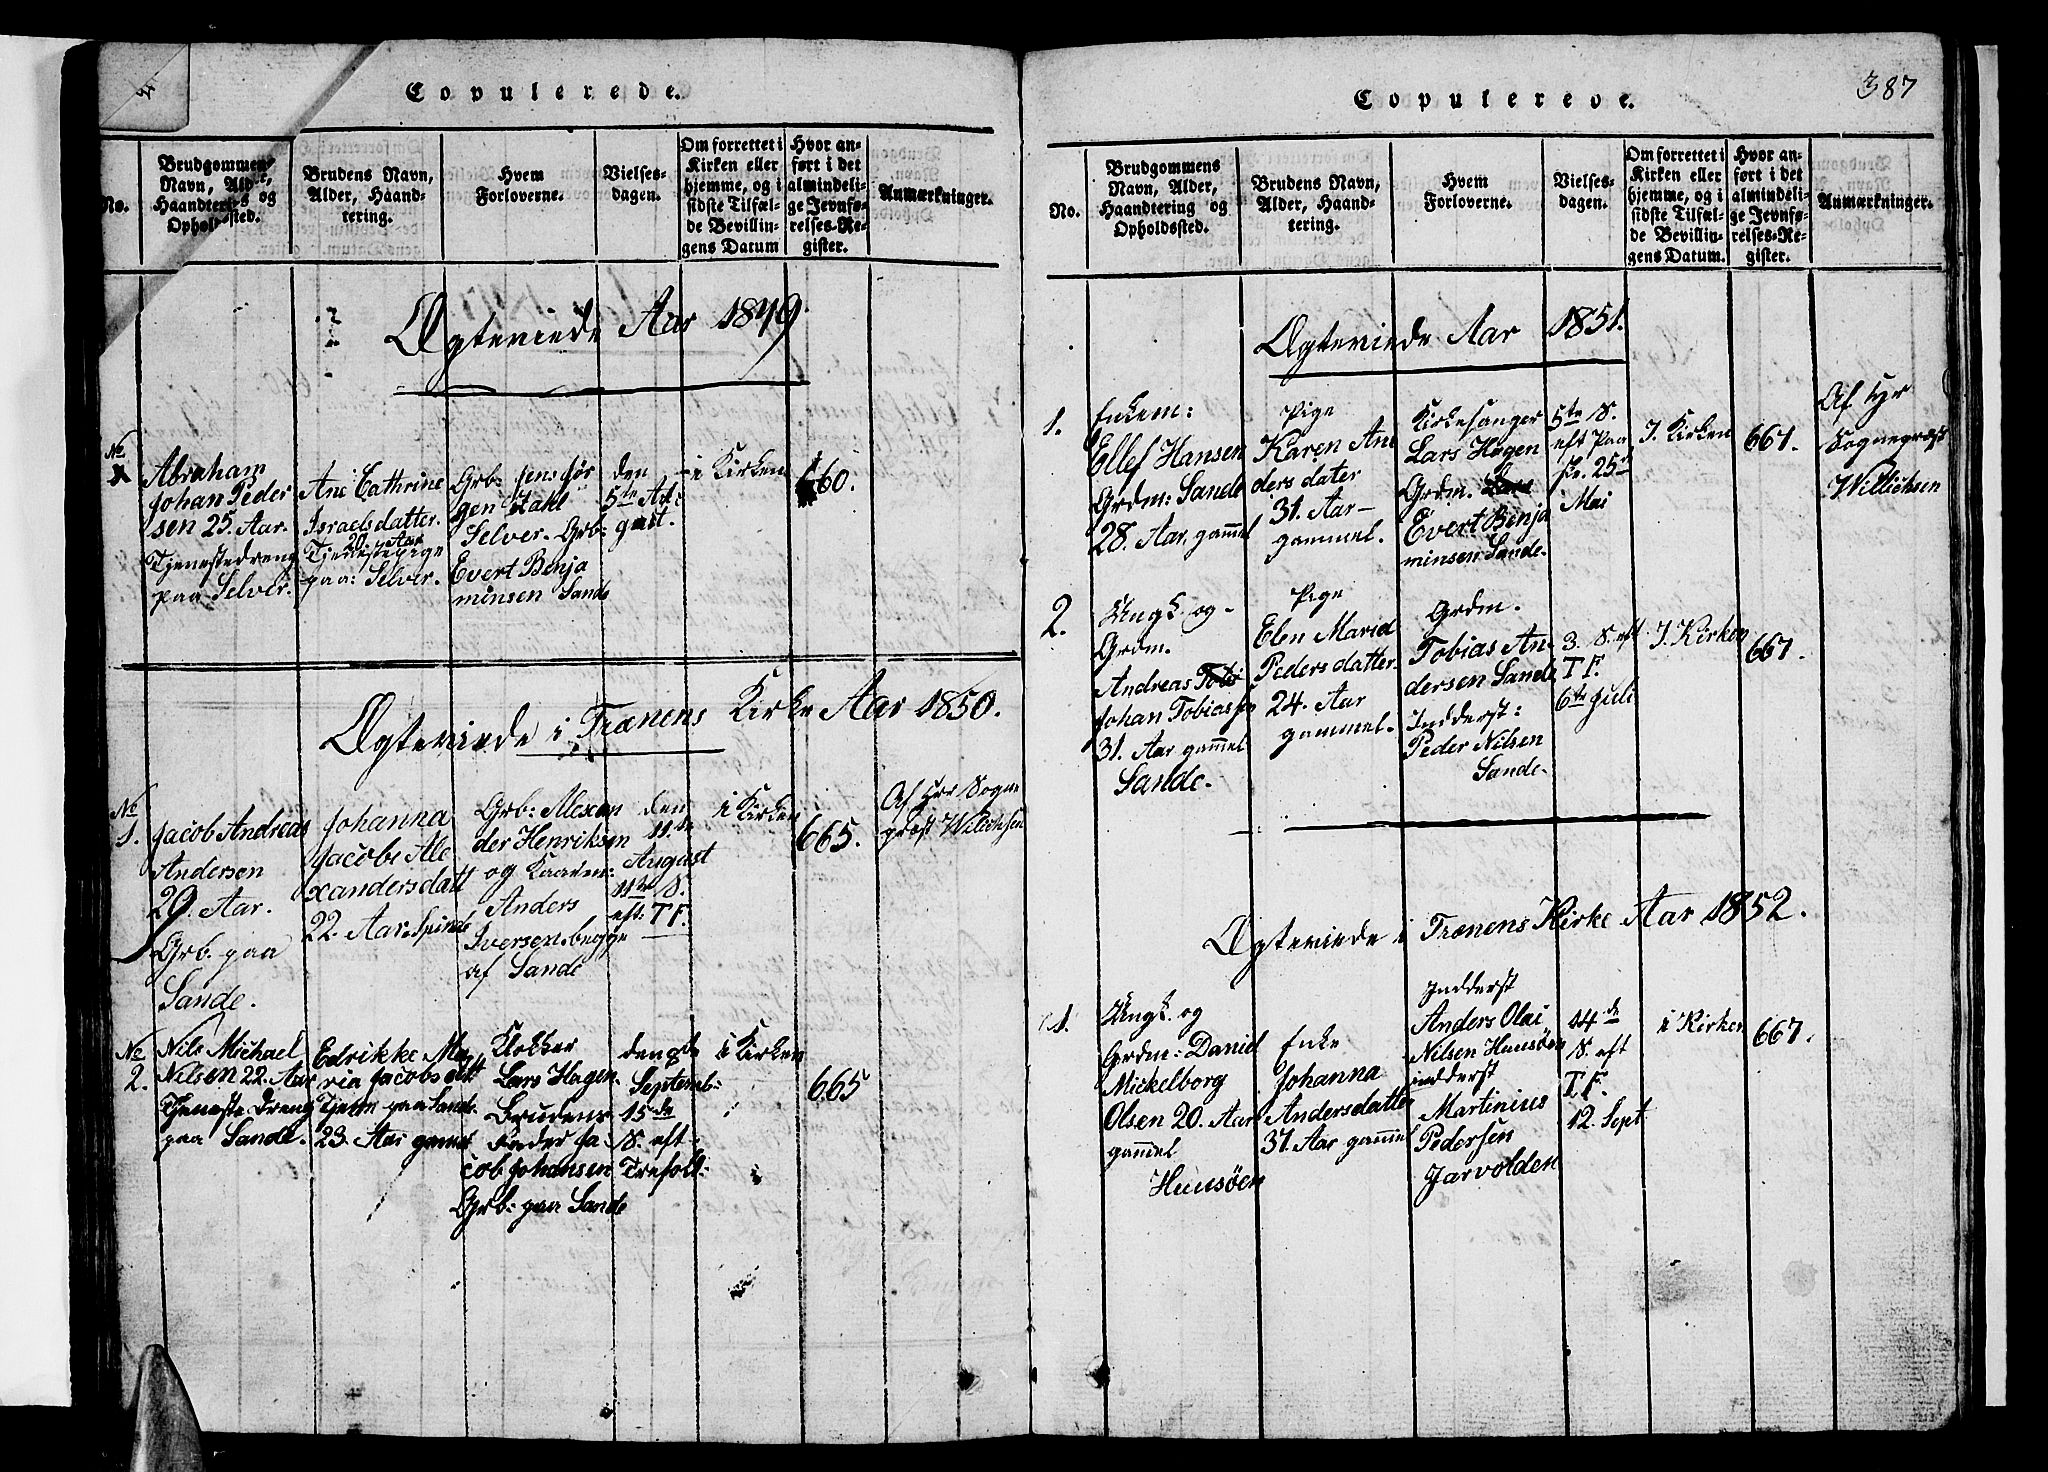 Copulerede.
No.
Brudgommens Navn, Alder, Haandtering og Opholdssted.
Brudens Navn, Alder, Haandtering.
Hvem Forloverne.
Vielsesdagen.
Om forrettet i Kirken eller hjemme, og i sidste Tilfælde Bevillingens Datum
Hvor anført i det almindelige Jevnførelses-Register.
Anmærkninger.
Ægteviede Aar 1849.
No
1
Abraham
Johan Peder
sen 25. Aar.
Tjenestedreng
paa Selver.
Ane Cathrine
Israelsdatter.
20 Aar
Tjenestepige
paa: Selver.
Grb: Jens Jør
gen Zahl
Selver. Grb:
Evert Benja
minsen Sande
den
5te Au:
gust.
i Kirken
660.
Ægteviede i Trænens Kirke Aar 1850.
No
1.
Jacob Andreas
Andersen
29. Aar.
Grb. paa
Sande.
Johanna
Jacobe Ale
xandersdatt
22. Aar.
Grb: Alexan
der Henriksen
og
Anders
Iversen begge
af Sande
den
11te
August
11te S.
eft: T F.
i Kirken
665.
Af Hrr Sogne
præst Willichsen
No
2.
Nils Michael
Nilsen 22. Aar
Tjeneste dreng
paa Sande.
Edrikke Ma
ria Jacobsdatt
Tjenn paa Sande
23. Aar gamel
Klokker
Lars Hagen.
Brudens
Fader Ja
cob Johansen
Grb: paa Sande
den
Septemb:
15de
S. eft
Trefolt:
i Kirken
665
387
Copulerede.
No.
Brudgommens Navn, Alder, Haandtering og Opholdssted.
Brudens Navn, Alder, Haandtering.
Hvem Forloverne.
Vielsesdagen.
Om forrettet i Kirken eller hjemme, og i sidste Tilfælde Bevillingens Datum.
Hvor anført i det almindelige Jevnførelses-Register.
Anmærkninger.
Ægteviede Aar 1851.
1.
Enkem:
Ellef Hansen
Grdm: Sande
28. Aar. gammel
Pige
Karen An
ders dater
31. Aar
gammel.
Kirkesanger
Lars Hagen
Grdm.
Evert Binja
minsen Sande.
5te S.
eft Paa
ske. 25de
Mai
I. Kirken
667.
Af Hr
Sognepræst
Willichsen
2.
Ungk. og
Grdm.
Andreas
Johan Tobiassen
31. Aar gammel
Sande.
Pige
Elen Maria
Pedersdatter.
24. Aar
gammel.
Grdm.
Tobias An
dersen Sande
Indderst:
Peder Nilsen
Sande.
3. S. eft
T F.
6te Juli
I. Kirken
667.
Ægteviede i Trænens Kirke Aar 1852.
1.
Ungk. og
Grdm: Daniel
Mickelborg
Olsen 20. Aar
gammel
Huusöen
Enke
Johanna
Andersdatter
37. Aar gammel
Indderst
Anders Olai
Nilsen Huusöen
indderst
Martinius
Pedersen
Jarvolden
14de
S. eft
T F.
12. Sept
i Kirken
667.